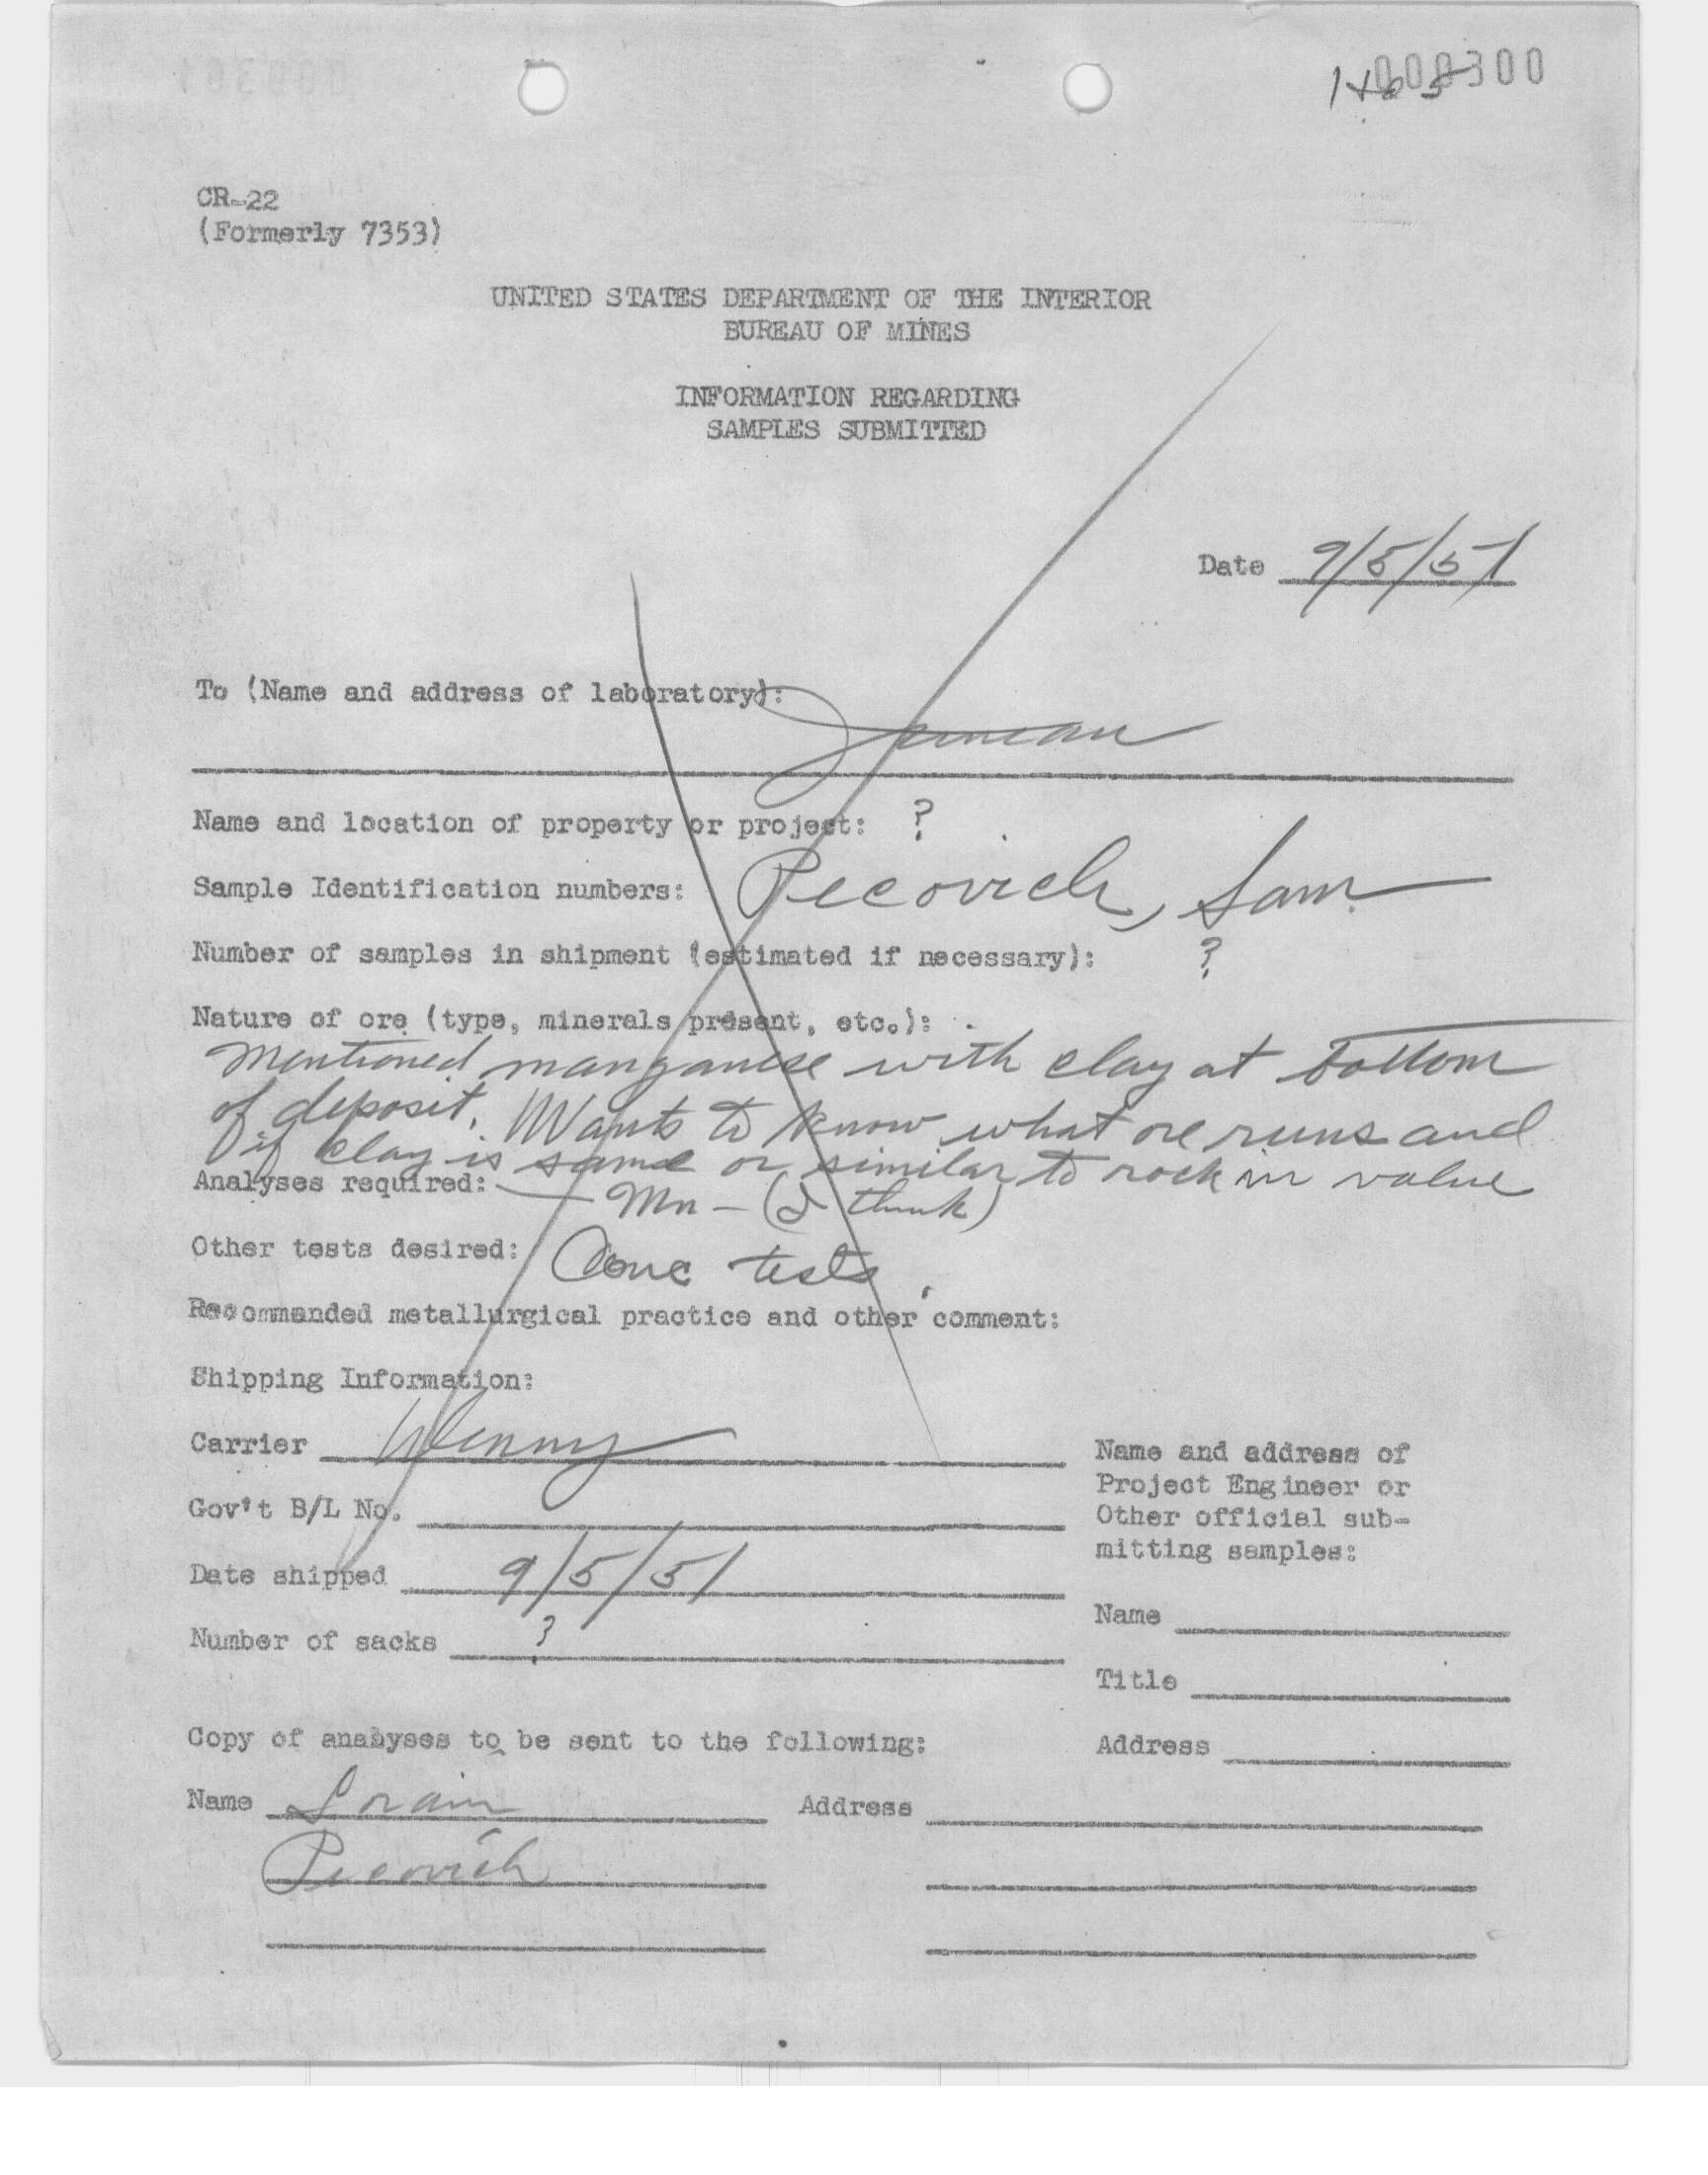 000300
CR-22
(Formerly 7353)
UNITED STATES DEPARTMENT OF THE INTERIOR
BUREAU OF MINES
INFORMATION REGARDING
SAMPLES SUBMITTED
Date 9/5/51
To (Name and address of laboratory):
Name and location of property or project: ?
Sample Identification numbers: Pecovich, Sam
Number of samples in shipment (estimated if necessary): ?
Nature of ore (type, minerals present, etc.):
Mentioned manganese with clay at bottom
of deposit. Wants to know what ore runs and
if clay is same or similar to rock in value
Analyses required: Mn - (I think)
Other tests desired: Conc tests.
Recommended metallurgical practice and other comment:
Shipping Information:
Carrier
Gov't B/L No.
Date shipped 9/5/51
Number of sacks ?
Name and address of
Project Engineer or
Other official sub-
mitting samples:
Name
Title
Address
Copy of analyses to be sent to the following:
Name Lorain Address
Pecovich